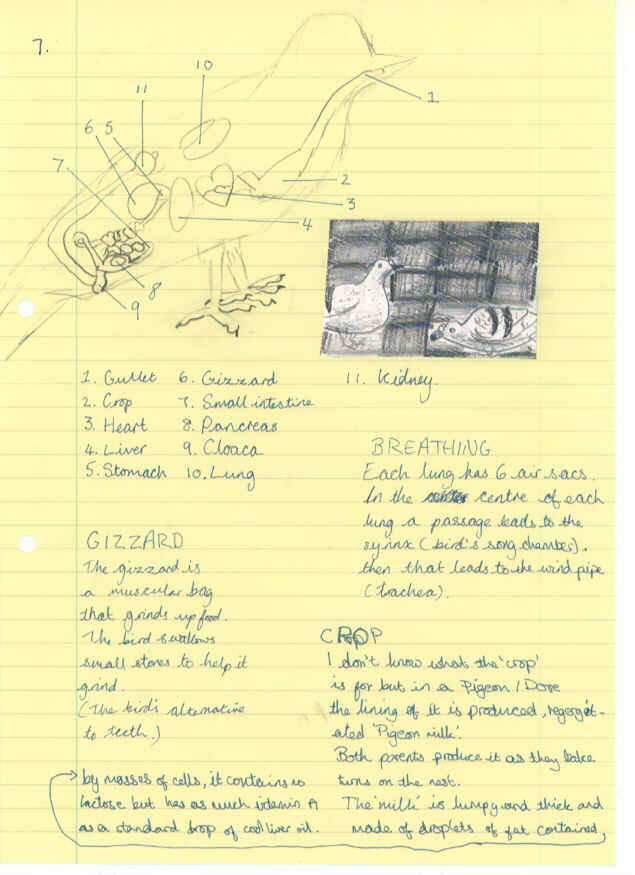 7.
10
11
1
6 5
7
2
3
4
8
9
1. Gullet 6. Gizzard 11. Kidney.
2. Crop 7. Small intestine
3. Heart 8. Pancreas
4. Liver 9. Cloaca
5. Stomach 10. Lung
BREATHING
Each lung has 6 air sacs.
In the centre of each
lung a passage leads to the
syrinx (bird's song chamber).
then that leads to the wind pipe
(trachea).
GIZZARD
The gizzard is
a muscular bag
that grinds up food.
The bird swallows
small stones to help it
grind.
(The bird's alternative
to teeth.)
CROP
I don't know what the 'crop'
is for but in a Pigeon / Dove
the lining of it is produced, regergit-
ated 'Pigeon milk'.
Both parents produce it as they take
turns on the nest.
The 'milk' is lumpy and thick and
made of droplets of fat contained,
by masses of cells, it contains no
lactose but has as much vitamin A
as a standard drop of cod liver oil.